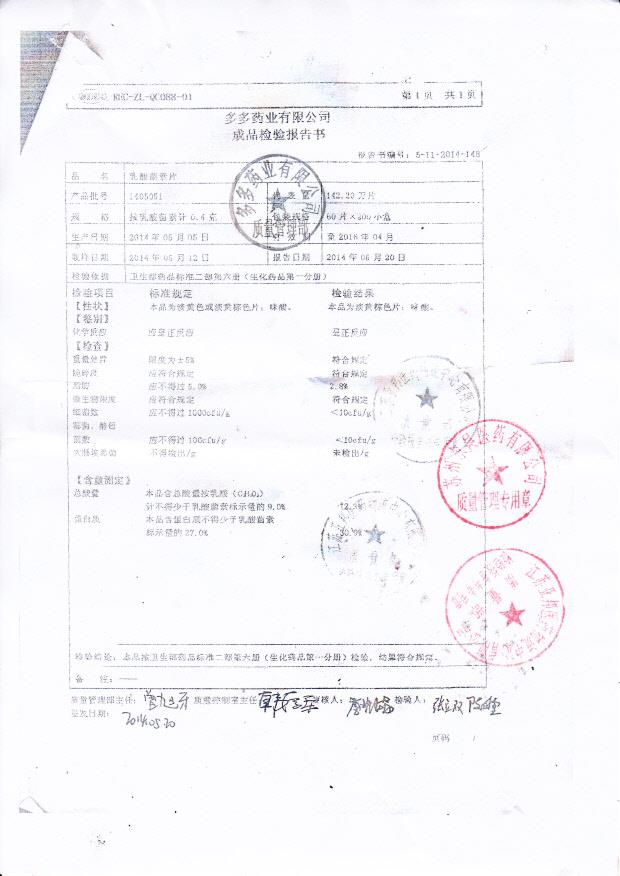 REC-ZL-QC088-01 第1页 共1页
多多药业有限公司
成品检验报告书
报告书编号：5-11-2014-148
品 名 乳酸菌素片
产品批号 1405051 142.23万片
规 格 按乳酸菌素计0.4克 包装规格 60片×200小盒
生产日期 2014年05月05日 至2016年04月
取样日期 2014年05月12日 报告日期 2014年05月20日
检验依据 卫生部药品标准二部第六册（生化药品第一分册）
检验项目 标准规定 检验结果
【性状】 本品为淡黄色或淡黄棕色片；味酸。 本品为淡黄棕色片；味酸。
【鉴别】
化学反应 应呈正反应 呈正反应
【检查】
重量差异 限度为±5% 符合规定
脆碎度 应符合规定 符合规定
脂肪 应不得过5.0% 2.8%
微生物限度 应符合规定 符合规定
细菌数 应不得过1000cfu/g <10cfu/g
霉菌、酵母
菌数 应不得过100cfu/g <10cfu/g
大肠埃希菌 不得检出/g 未检出/g
【含量测定】
总酸量 本品含总酸量按乳酸（C₃H₆O₃）
计不得少于乳酸菌素标示量的9.0% 12.3%
蛋白质 本品含蛋白质不得少于乳酸菌素
标示量的27.0%
检验结论：本品按卫生部药品标准二部第六册（生化药品第一分册）检验，结果符合规定。
备 注：——
质量管理部主任： 质量控制室主任 复核人： 检验人：
签发日期： 2014.05.20
页码 /
多多药业有限公司
质量管理部
医药有限公司
质量管理专用章